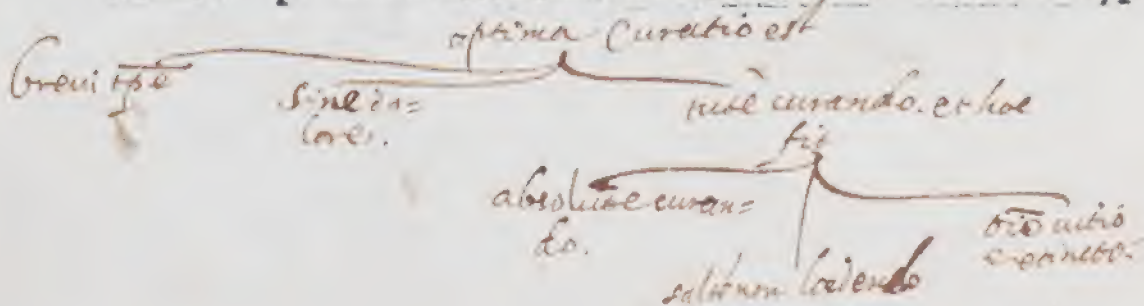 optima Curatio est
breui tp̄e
sine do=
lore.
tute curando. et hoc
fit
absolute curan=
do.
non loedendo
uitio